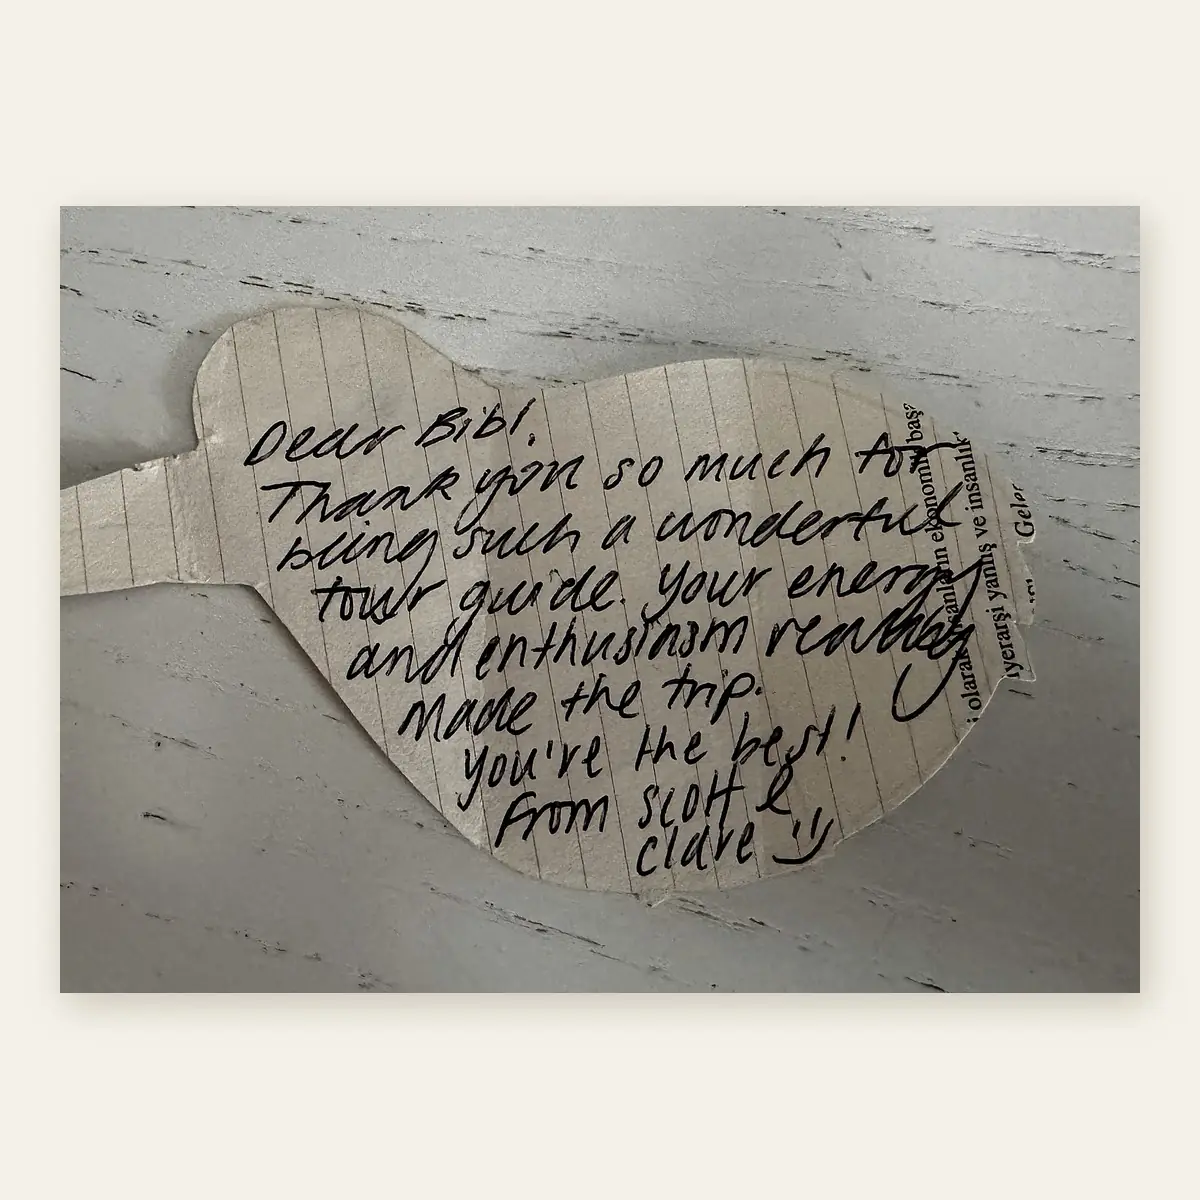 Dear Bibi,
Thank you so much for
being such a wonderful
tour guide. Your energy
and enthusiasm really
made the trip.
You're the best!
From Scott &
Clare
ve insanlık
yanlış
Geler